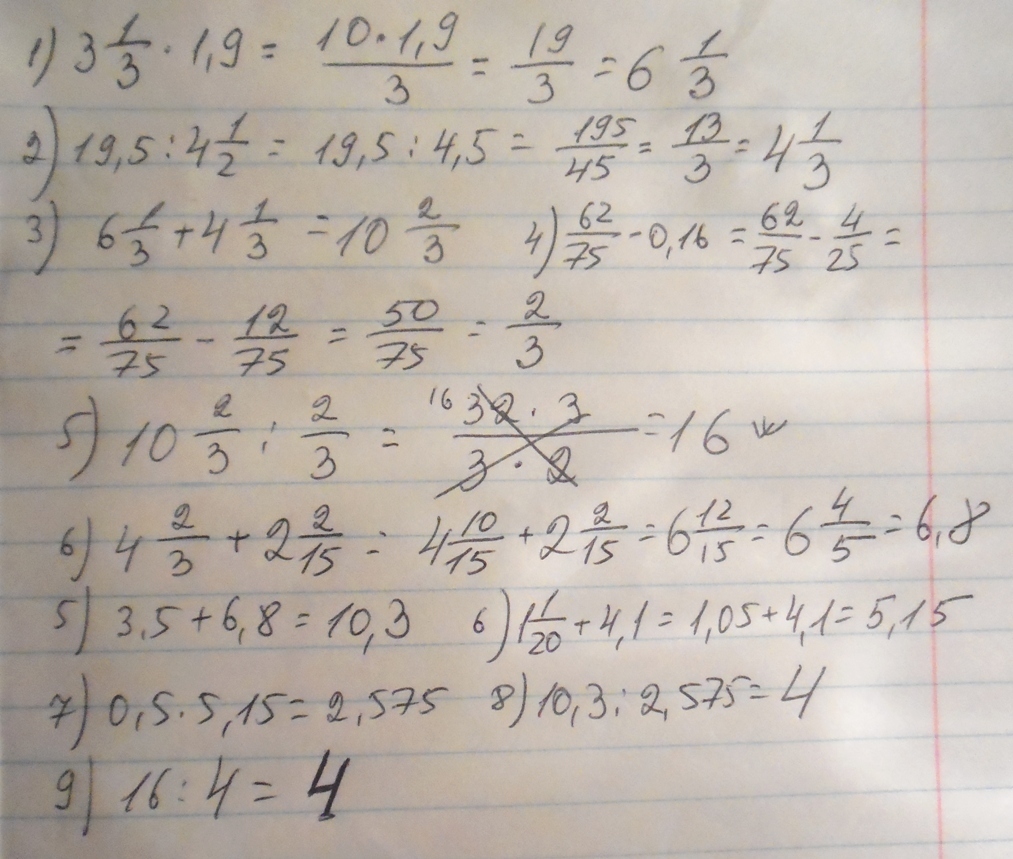 1) 3 1/3 · 1,9 = 10·1,9/3 = 19/3 = 6 1/3
2) 19,5 : 4 1/2 = 19,5 : 4,5 = 195/45 = 13/3 = 4 1/3
3) 6 1/3 + 4 1/3 = 10 2/3 4) 62/75 - 0,16 = 62/75 - 4/25 =
= 62/75 - 12/75 = 50/75 = 2/3
5) 10 2/3 : 2/3 = 16 32·3/3·2 = 16
6) 4 2/3 + 2 2/15 = 4 10/15 + 2 2/15 = 6 12/15 = 6 4/5 = 6,8
5) 3,5 + 6,8 = 10,3 6) 1 1/20 + 4,1 = 1,05 + 4,1 = 5,15
7) 0,5 · 5,15 = 2,575 8) 10,3 : 2,575 = 4
9) 16 : 4 = 4